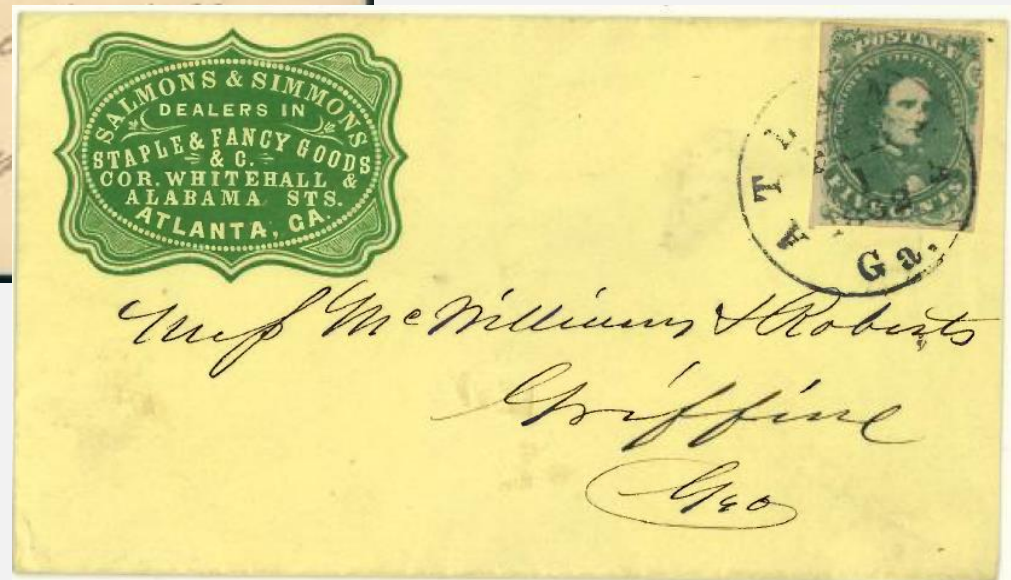 SALMONS & SIMMONS
DEALERS IN
STAPLE & FANCY GOODS
& C.
COR. WHITEHALL &
ALABAMA STS.
ATLANTA, GA.
POSTAGE
FIVE CENTS
ATLANTA
1862
Ga.
Mess McWilliams & Roberts
Griffine
Geo